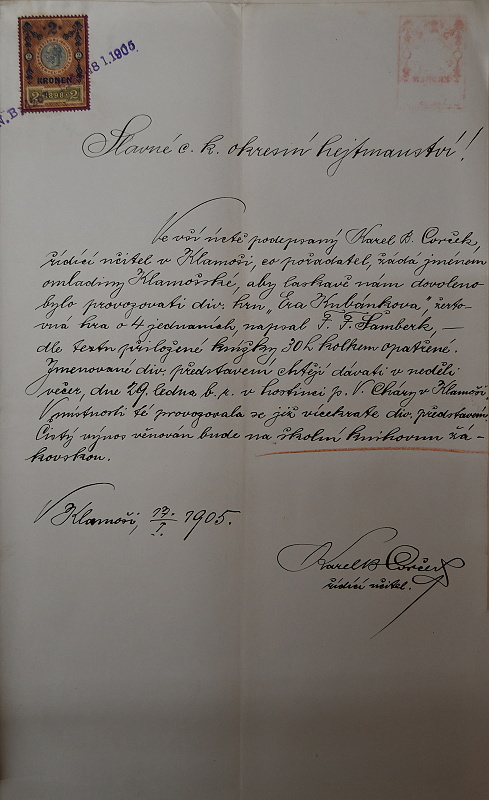 2
KRONEN
2 1898 2
1.1905.
Slavné c. k. okresní hejtmanství!
Ve vší úctě podepsaný Karel B. Corček,
řídící učitel v Klamoši, co pořadatel, žádá jménem
omladiny Klamošské, aby laskavě nám dovoleno
bylo provozovati div. hru „Era Kubánkova", žerto-
vná hra o 4 jednáních, napsal F. F. Šamberk, —
dle textu přiložené knížky 30 h kolkem opatřené.
Jmenované div. představení chtějí dávati v neděli
večer, dne 29. ledna b. r. v hostinci p. V. Cháry v Klamoši.
V místnosti té provozovala se již vícekráte div. představení,
Čistý výnos věnován bude na školní knihovnu žá-
kovskou.
V Klamoši, 17./I. 1905.
Karel B Corček
řídící učitel.